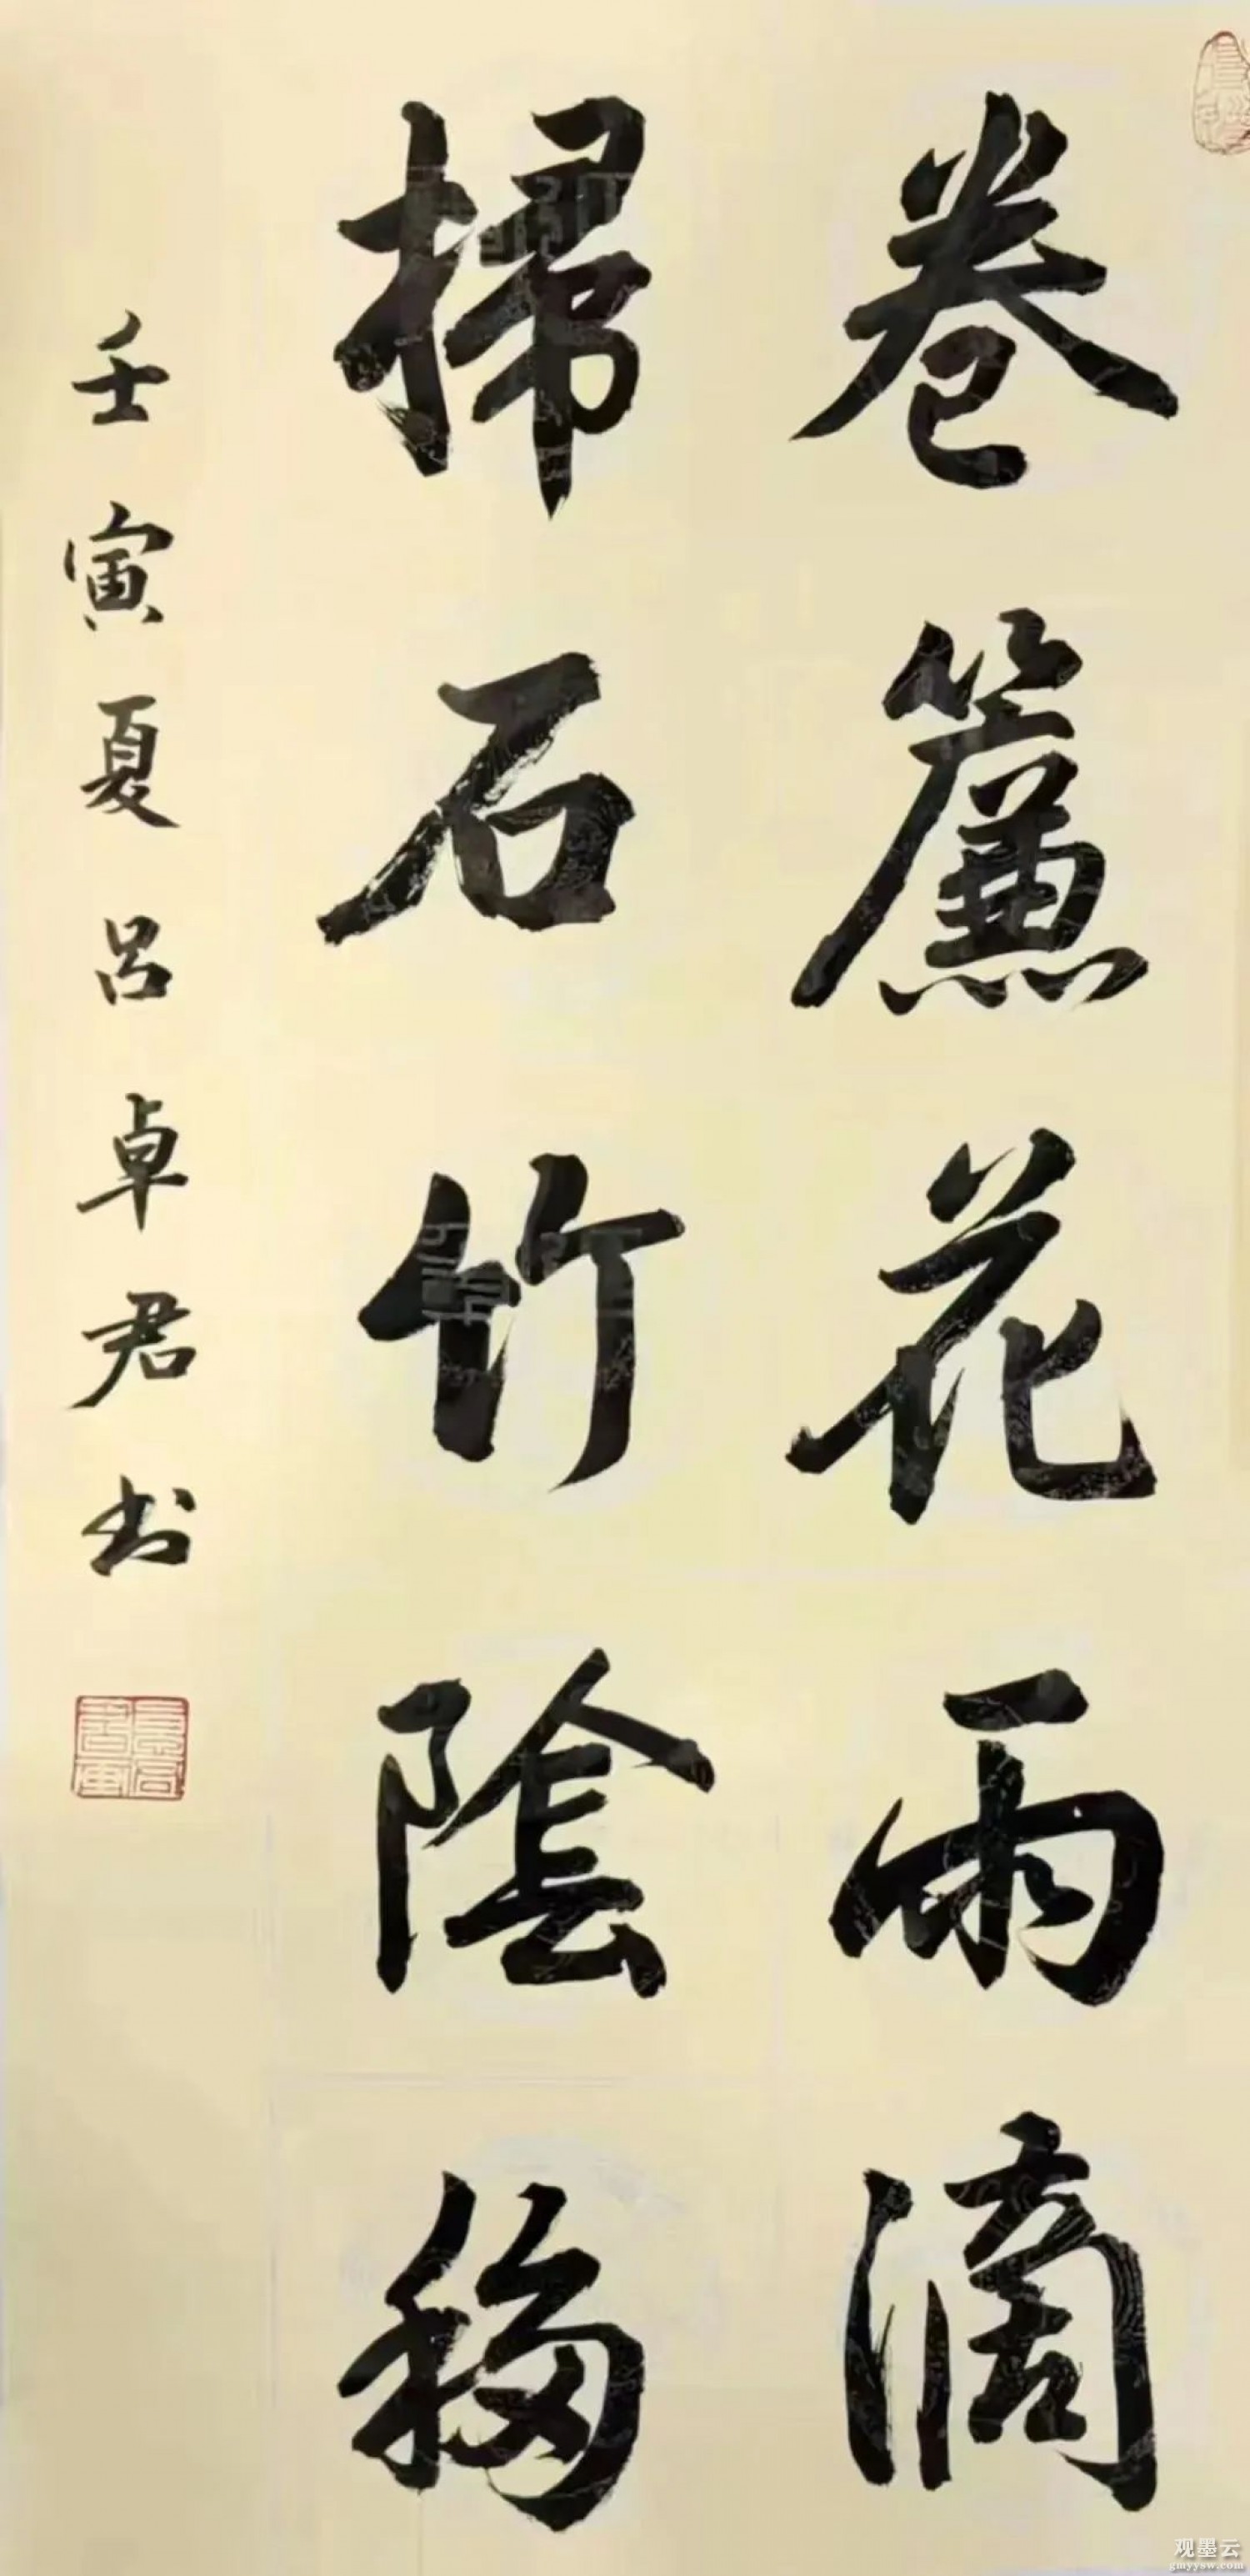 卷簾花雨滴
掃石竹陰移
壬寅夏呂卓君书
观墨云
gmyysw.com